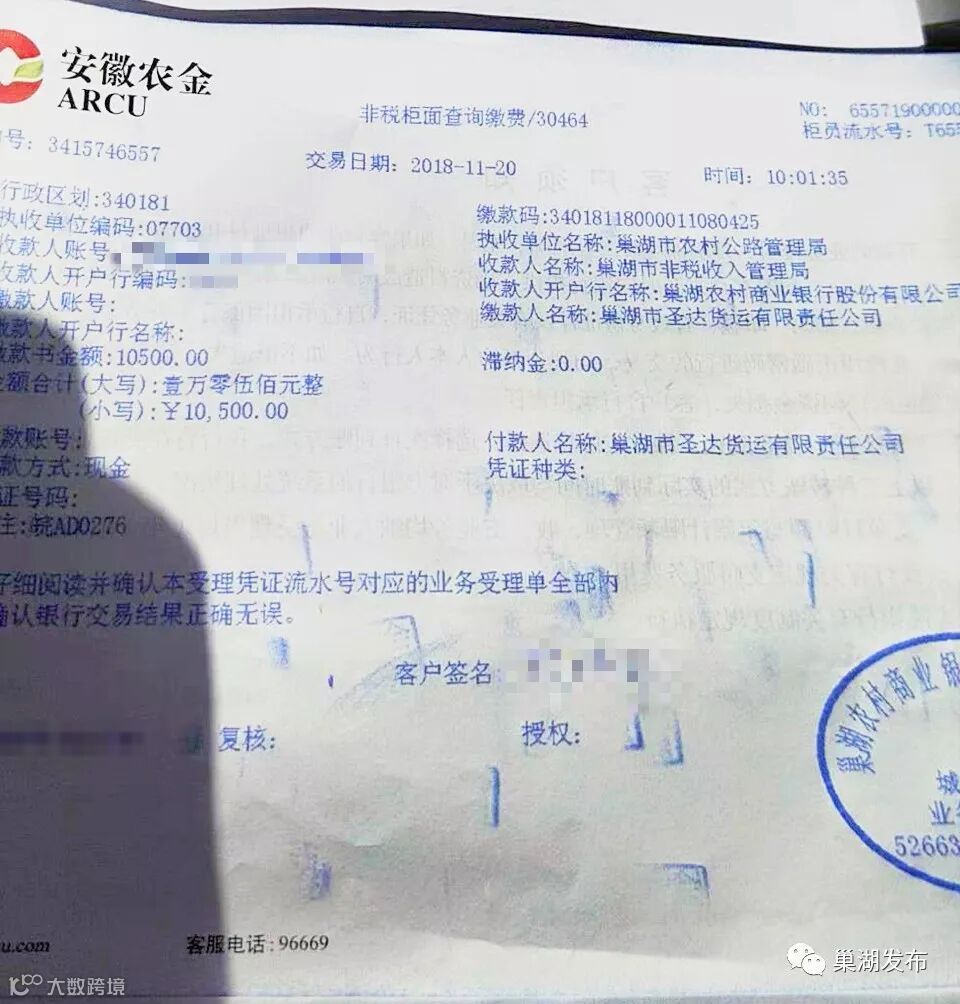 安徽农金
ARCU
非税柜面查询缴费/30464
NO: 65571900000
柜员流水号: T655
号: 3415746557
交易日期: 2018-11-20
时间: 10:01:35
行政区划:340181
缴款码:34018118000011080425
执收单位编码:07703
执收单位名称:巢湖市农村公路管理局
收款人账号
收款人名称:巢湖市非税收入管理局
收款人开户行编码:
收款人开户行名称:巢湖农村商业银行股份有限公司
缴款人账号:
缴款人名称:巢湖市圣达货运有限责任公司
缴款人开户行名称:
缴款书金额:10500.00
滞纳金:0.00
金额合计(大写):壹万零伍佰元整
(小写):¥10,500.00
款账号:
付款人名称:巢湖市圣达货运有限责任公司
款方式:现金
凭证种类:
证号码:
注:皖AD0276
仔细阅读并确认本受理凭证流水号对应的业务受理单全部内
确认银行交易结果正确无误。
客户签名:
复核:
授权:
巢湖农村商业银
业务
52663
u.com
客服电话:96669
巢湖发布
大数跨境